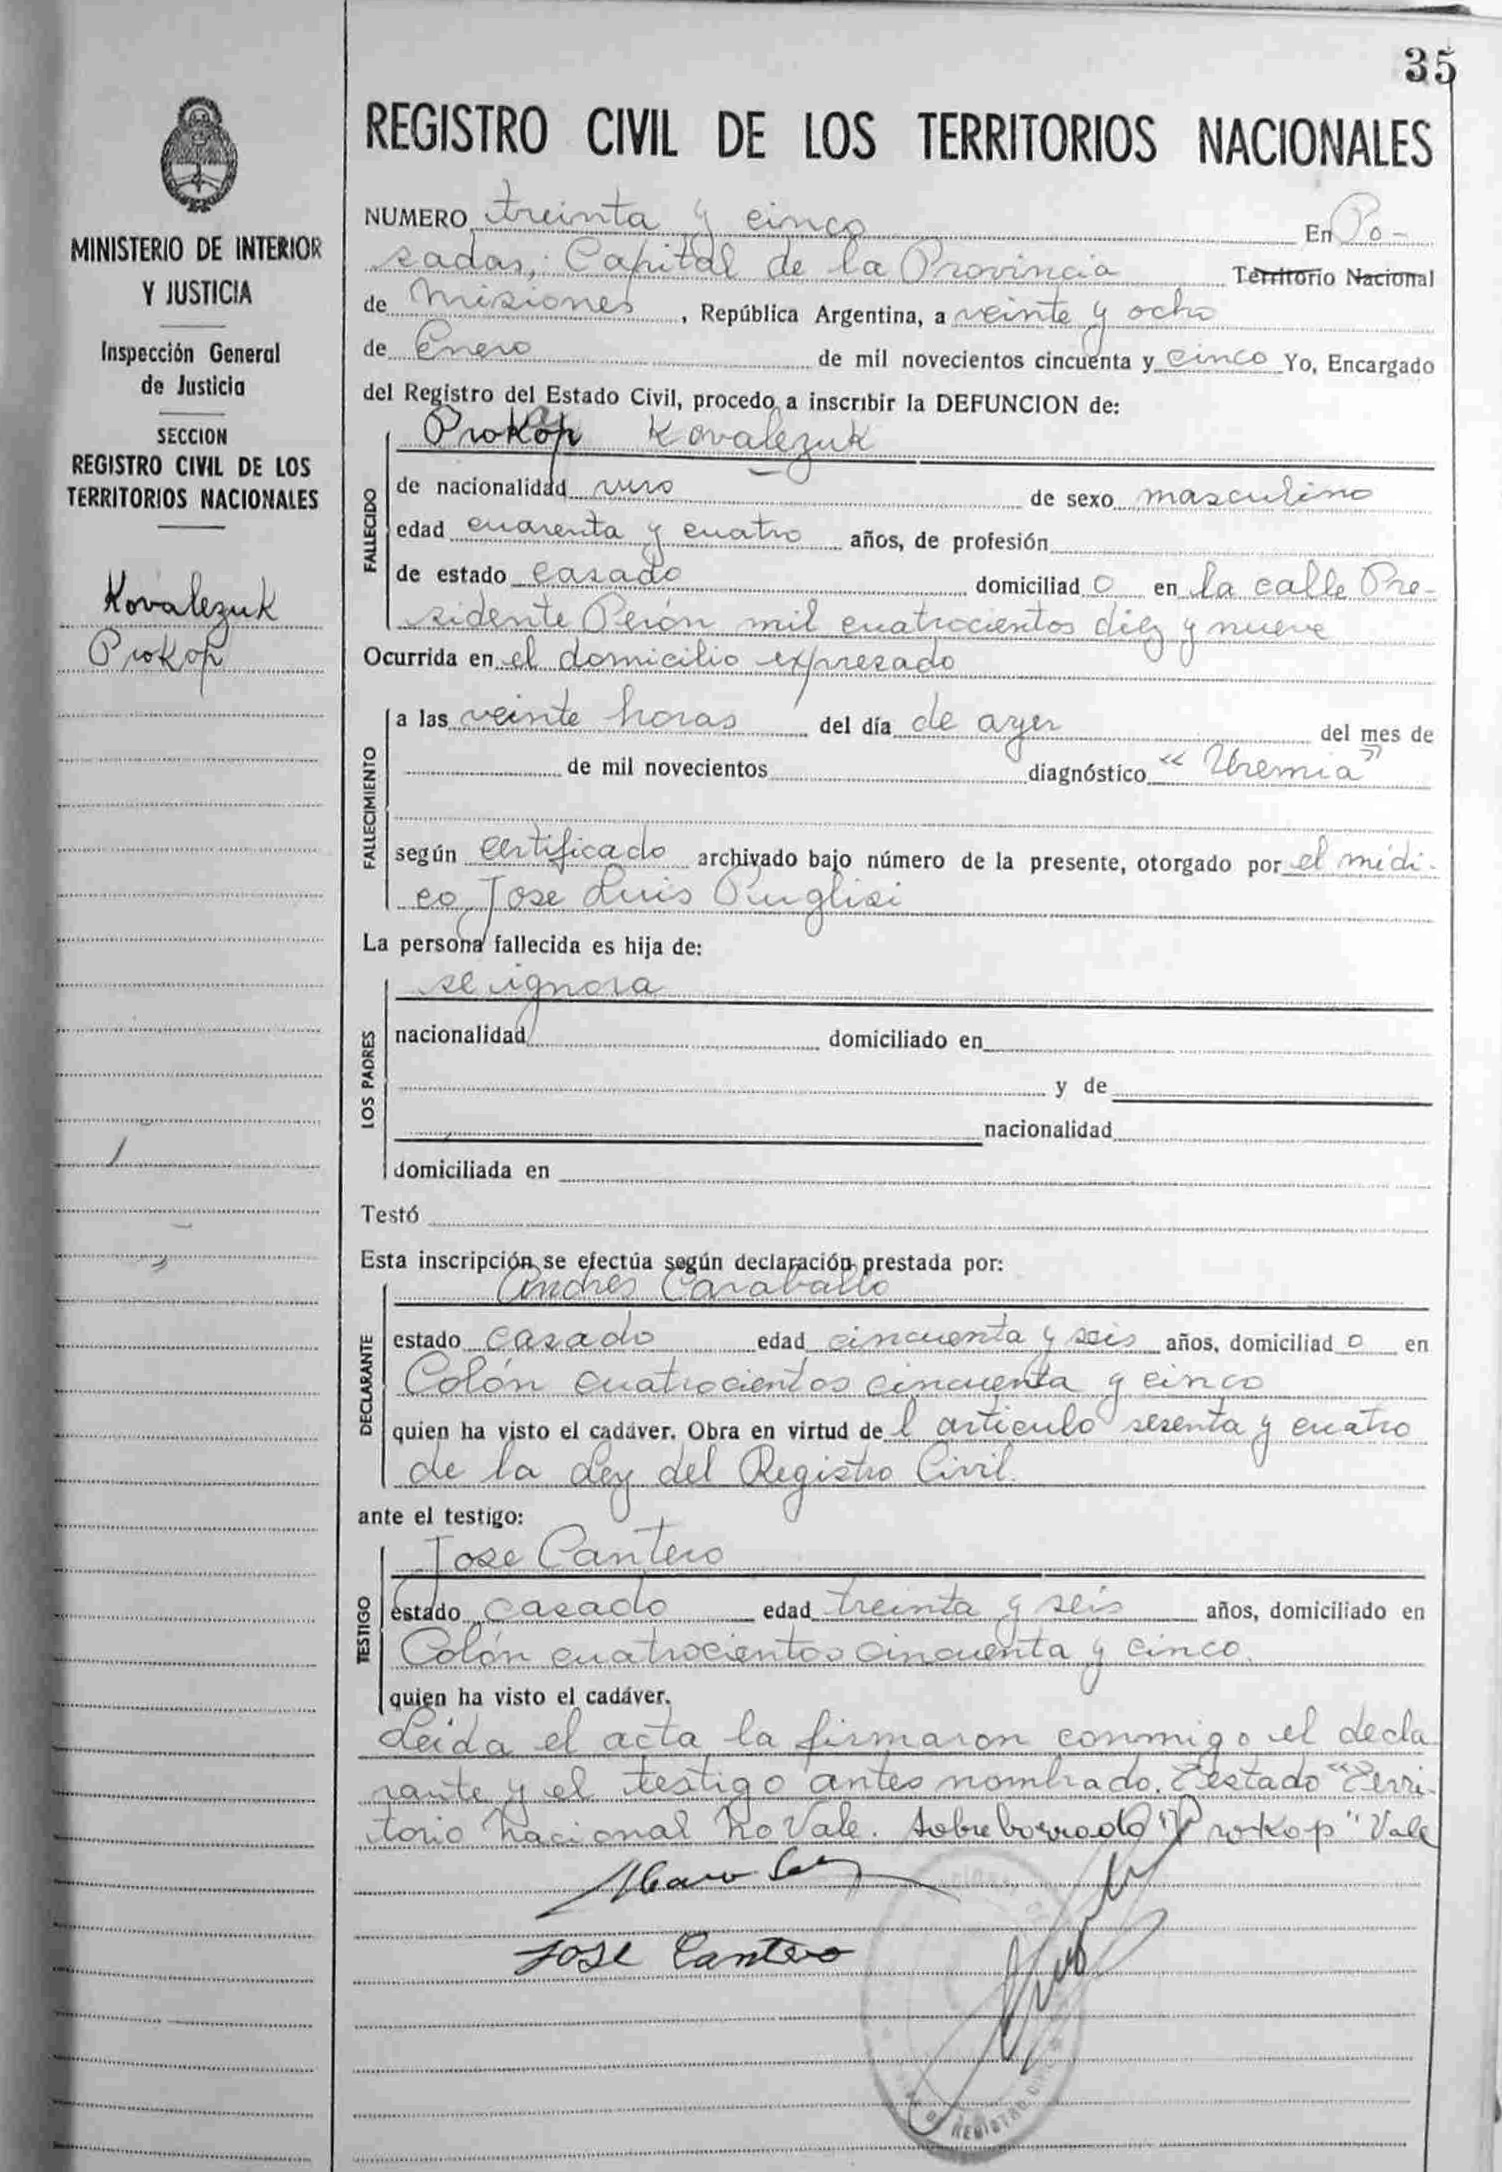 35
REGISTRO CIVIL DE LOS TERRITORIOS NACIONALES
MINISTERIO DE INTERIOR
Y JUSTICIA
Inspección General
de Justicia
SECCION
REGISTRO CIVIL DE LOS
TERRITORIOS NACIONALES
Kovalezuk
Prokop
NUMERO treinta y cinco En Po-
sadas, Capital de la Provincia Territorio Nacional
de Misiones, República Argentina, a veinte y ocho
de Enero de mil novecientos cincuenta y cinco Yo, Encargado
del Registro del Estado Civil, procedo a inscribir la DEFUNCION de:
Prokop Kovalezuk
FALLECIDO
de nacionalidad ruso de sexo masculino
edad cuarenta y cuatro años, de profesión
de estado casado domiciliad o en la calle Pre-
sidente Perón mil cuatrocientos diez y nueve
Ocurrida en el domicilio expresado
FALLECIMIENTO
a las veinte horas del día de ayer del mes de
de mil novecientos diagnóstico "Uremia"
según certificado archivado bajo número de la presente, otorgado por el médi-
co Jose Luis Puglisi
La persona fallecida es hija de:
LOS PADRES
se ignora
nacionalidad domiciliado en
y de
nacionalidad
domiciliada en
Testó
Esta inscripción se efectúa según declaración prestada por:
DECLARANTE
Andres Caraballo
estado casado edad cincuenta y seis años, domiciliad o en
Colón cuatrocientos cincuenta y cinco
quien ha visto el cadáver. Obra en virtud de l artículo sesenta y cuatro
de la Ley del Registro Civil.
ante el testigo:
TESTIGO
Jose Cantero
estado casado edad treinta y seis años, domiciliado en
Colón cuatrocientos cincuenta y cinco.
quien ha visto el cadáver.
Leida el acta la firmaron conmigo el decla
rante y el testigo antes nombrado. Testado "Terri-
torio Nacional No Vale. Sobre borrado "Prokop" Vale
Jose Cantero